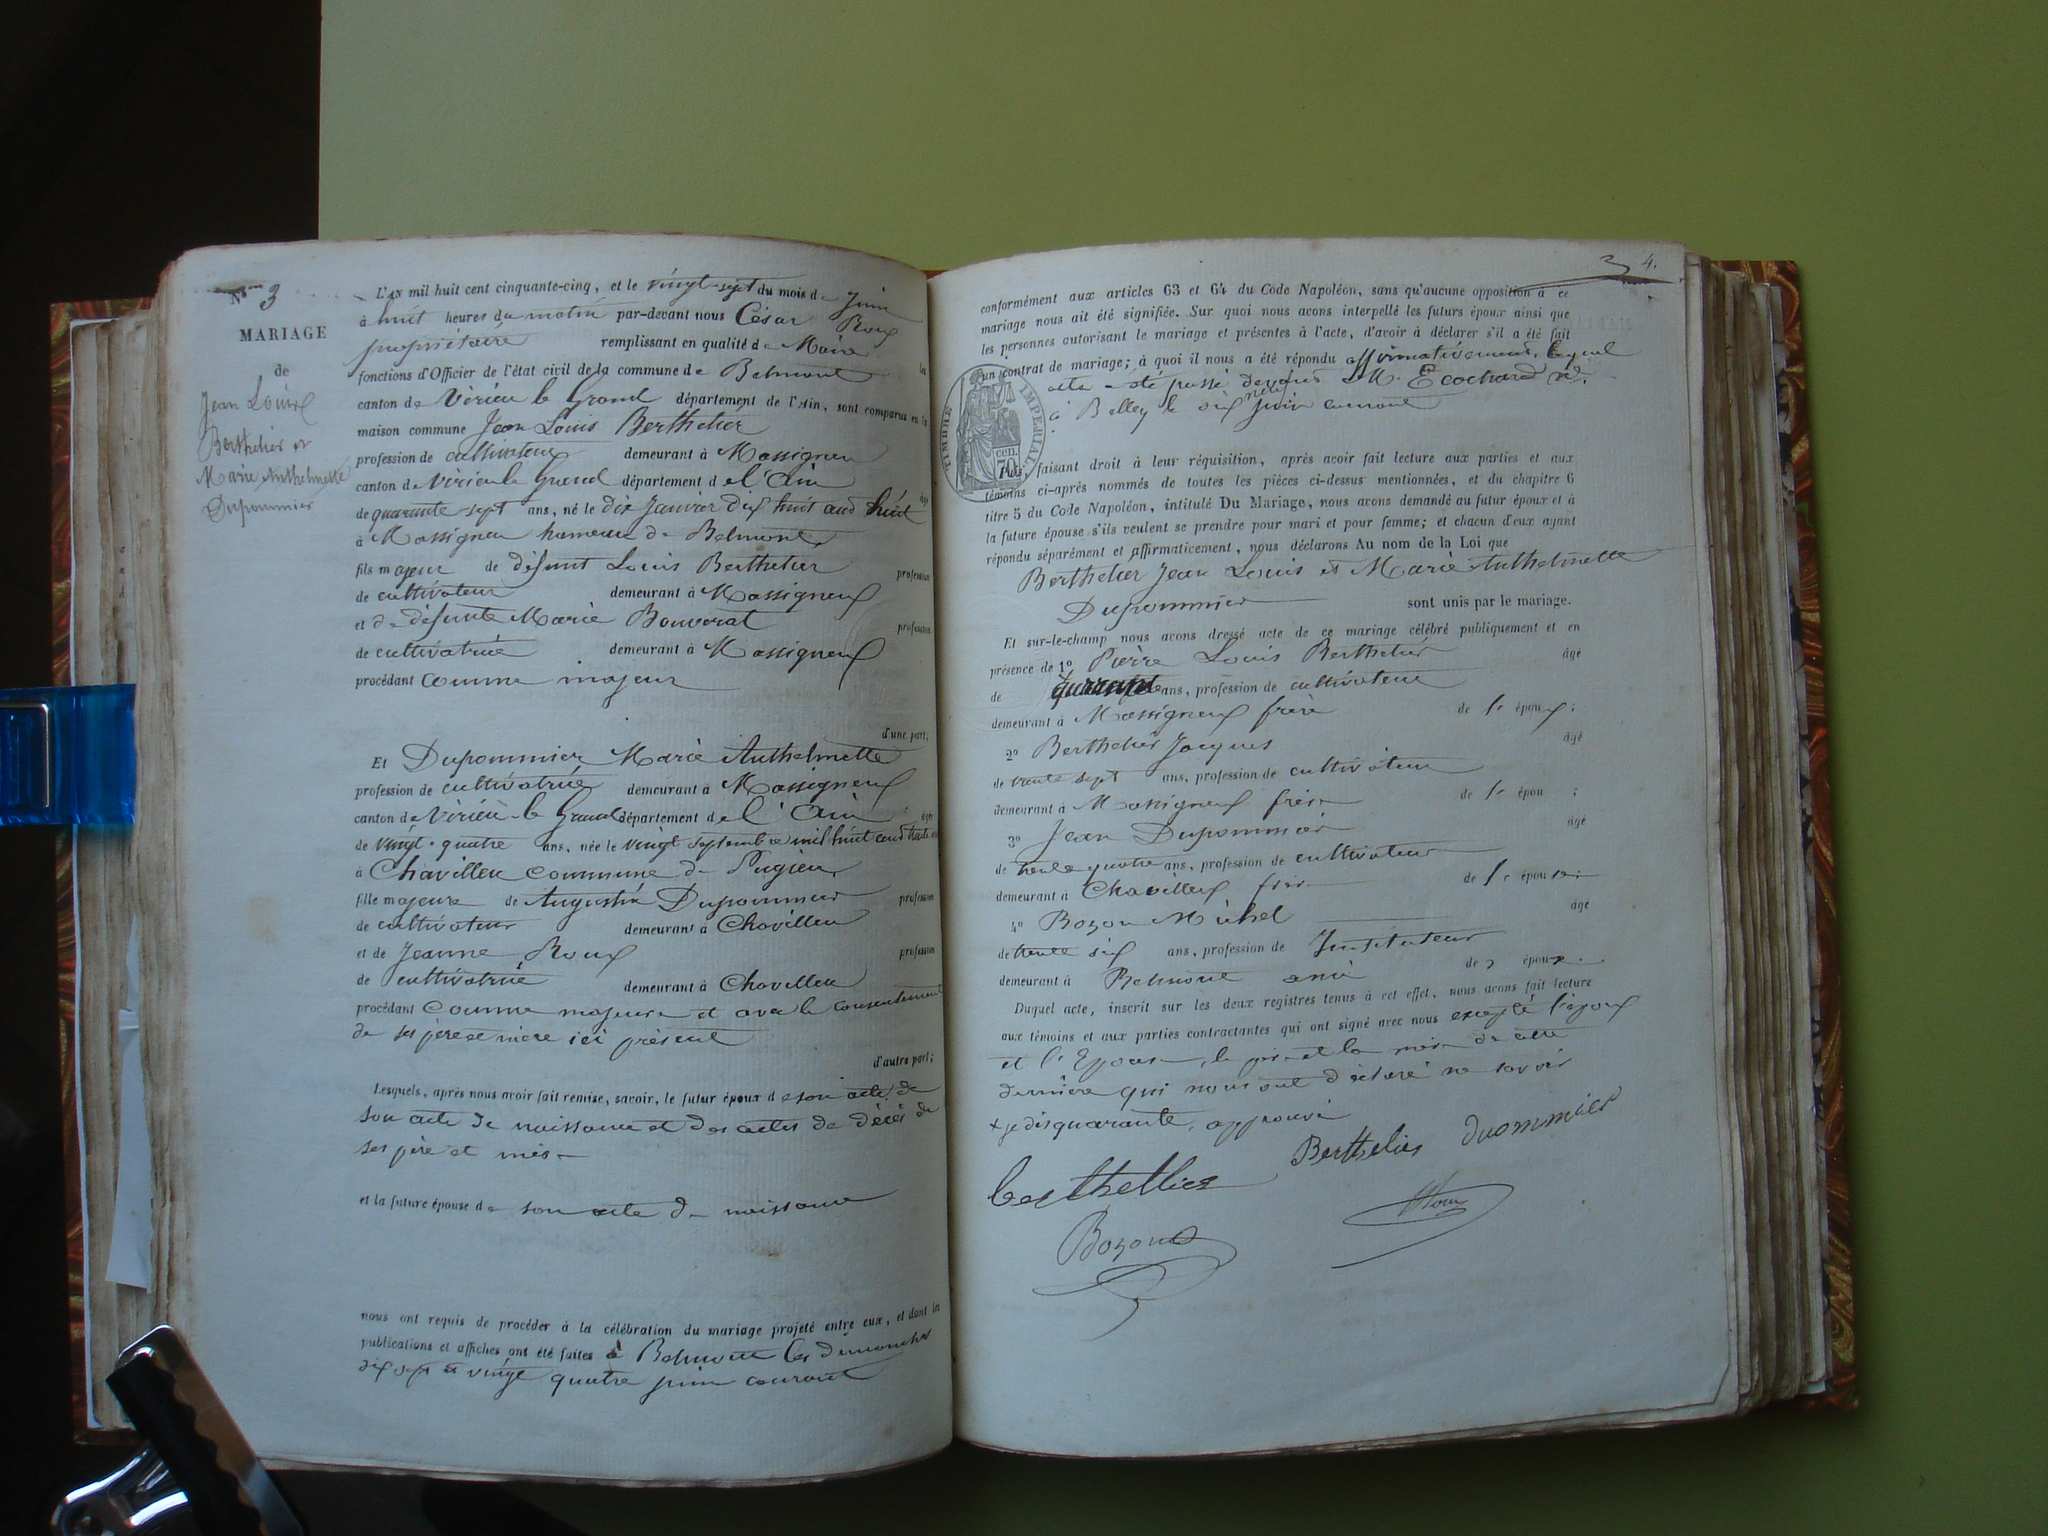 N° 3
MARIAGE
de
Jean Louis
Berthelier et
Marie Anthelmette
Dupommier
L'AN mil huit cent cinquante-cinq, et le vingt-sept du mois de Juin
à huit heures du matin par-devant nous César Roux
propriétaire remplissant en qualité de Maire les
fonctions d'Officier de l'état civil de la commune de Belmont
canton de Virieu le Grand département de l'Ain, sont comparus en la
maison commune Jean Louis Berthelier
profession de cultivateur demeurant à Massigneu
canton de Virieu le Grand département de l'Ain âgé
de quarante-sept ans, né le dix Janvier dix huit cent huit
à Massigneu hameau de Belmont
fils majeur de défunt Louis Berthelier profession
de cultivateur demeurant à Massigneux
et de défunte Marie Bonverat profession
de cultivatrice demeurant à Massigneux
procédant comme majeur
d'une part;
Et Dupommier Marie Anthelmette
profession de cultivatrice demeurant à Massigneux
canton de Virieu-le Grand département de l'Ain âgée
de vingt-quatre ans, née le vingt septembre mil huit cent trente
à Chavilleu commune de Pugieu
fille majeure de Augustin Dupommier profession
de cultivateur demeurant à Chavilleu
et de Jeanne Roux profession
de cultivatrice demeurant à Chavilleu
procédant comme majeure et avec le consentement
de ses père et mère ici présent
d'autre part;
Lesquels, après nous avoir fait remise, savoir, le futur époux de son acte de
son acte de naissance et des actes de décès de
ses père et mère
et la future épouse de son acte de naissance
nous ont requis de procéder à la célébration du mariage projeté entre eux, et dont les
publications et affiches ont été faites à Belmont les dimanches
dix sept et vingt quatre juin courant
4.
conformément aux articles 63 et 64 du Code Napoléon, sans qu'aucune opposition à ce
mariage nous ait été signifiée. Sur quoi nous avons interpellé les futurs époux ainsi que
les personnes autorisant le mariage et présentes à l'acte, d'avoir à déclarer s'il a été fait
un contrat de mariage; à quoi il nous a été répondu affirmativement, lequel
acte a été passé devant M. Ecochard nre
à Belley le six juin courant
TIMBRE IMPERIAL
70 cen.
Nous, faisant droit à leur réquisition, après avoir fait lecture aux parties et aux
témoins ci-après nommés de toutes les pièces ci-dessus mentionnées, et du chapitre 6
titre 5 du Code Napoléon, intitulé Du Mariage, nous avons demandé au futur époux et à
la future épouse s'ils veulent se prendre pour mari et pour femme; et chacun d'eux ayant
répondu séparément et affirmativement, nous déclarons Au nom de la Loi que
Berthelier Jean Louis et Marie Anthelmette
Dupommier sont unis par le mariage.
Et sur-le-champ nous avons dressé acte de ce mariage célébré publiquement et en
présence de 1° Pierre Louis Berthelier âgé
de quarante ans, profession de cultivateur
demeurant à Massigneux frère de l' époux;
2° Berthelier Jacques âgé
de trente sept ans, profession de cultivateur
demeurant à Massigneux frère de l' épou ;
3° Jean Dupommier âgé
de trente quatre ans, profession de cultivateur
demeurant à Chavilleux frère de l' épouse;
4° Bozon Michel âgé
de trente six ans, profession de Instituteur
demeurant à Belmont ami des époux.
Duquel acte, inscrit sur les deux registres tenus à cet effet, nous avons fait lecture
aux témoins et aux parties contractantes qui ont signé avec nous excepté l'époux
et l'Epouse, le père et la mère de cette
dernière qui nous ont déclaré ne savoir
x je dis quarante, approuvé
Berthellier Berthelier duommier
Bozon Roux